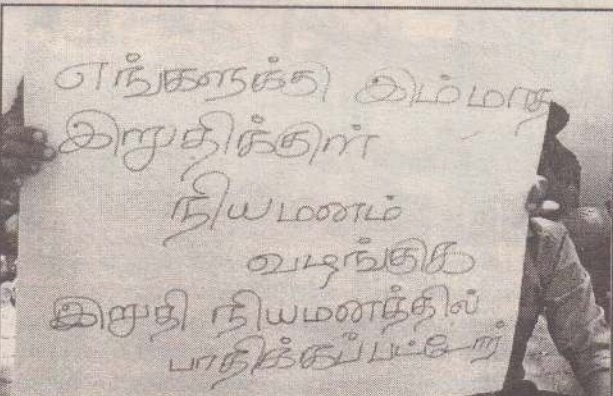 எங்களுக்கு இம்மாத
இறுதிக்குள்
நியமனம்
வழங்குக
இறுதி நியமனத்தில்
பாதிக்கப்பட்டோர்